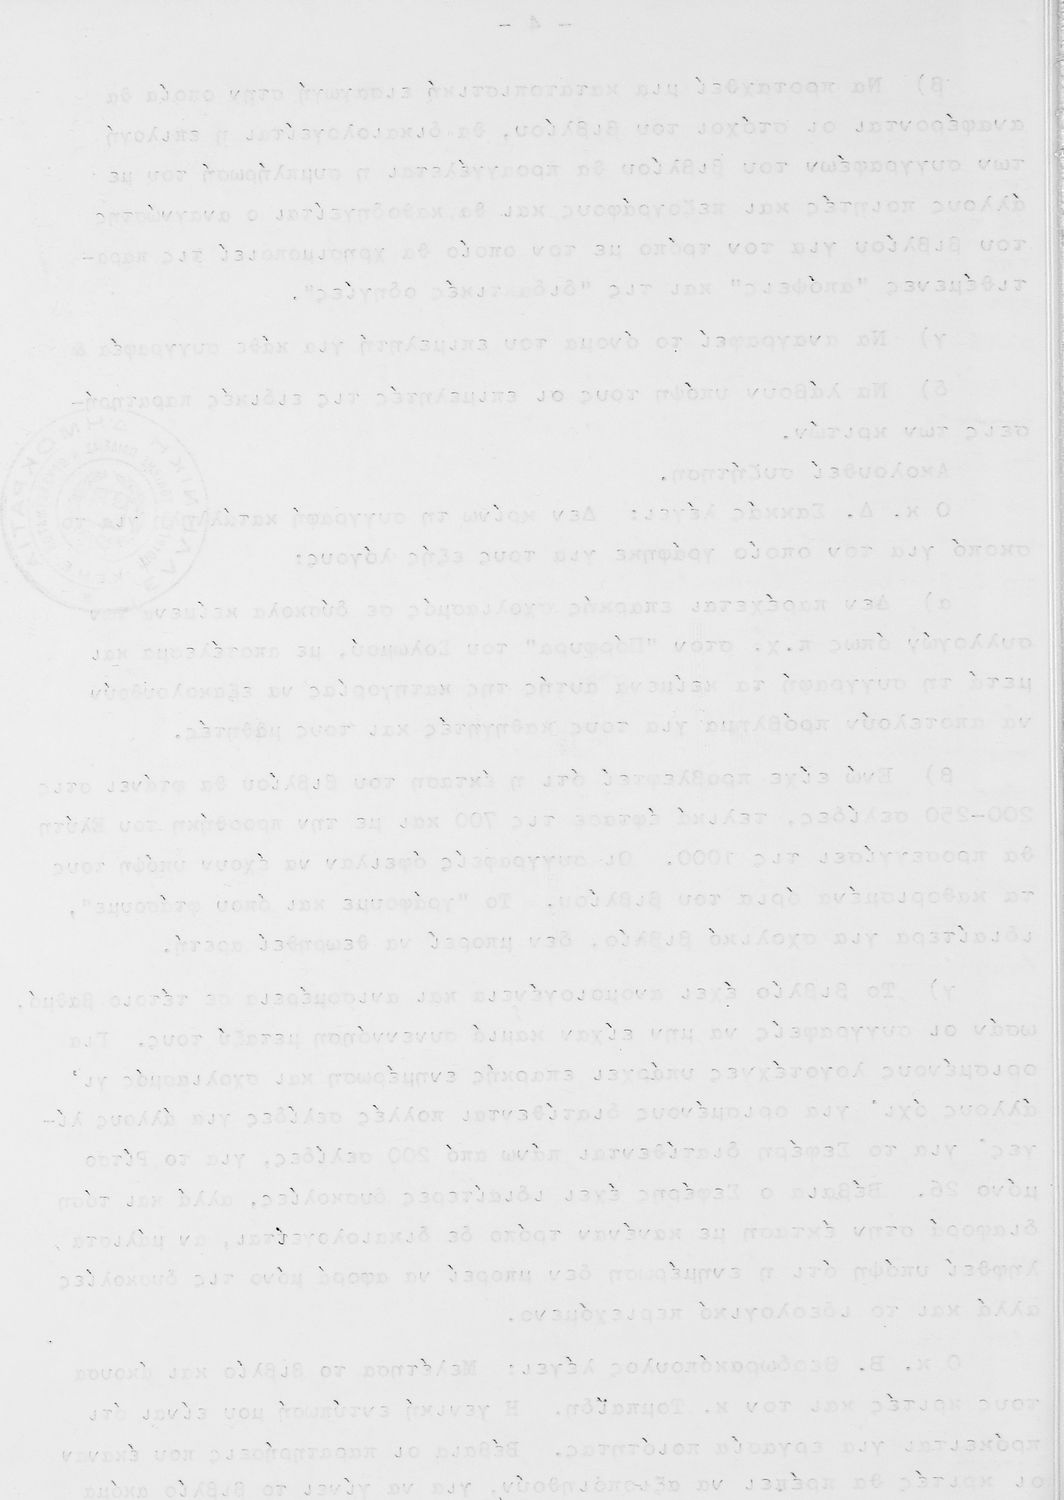 - 4 -
β) Να προταχθεί μια κατατοπιστική εισαγωγή στην οποία θα
αναφέρονται οι στόχοι του βιβλίου, θα δικαιολογείται η επιλογή
των συγγραφέων του βιβλίου θα προαγγέλεται η συμπλήρωσή του με
άλλους ποιητές και πεζογράφους και θα καθοδηγείται ο αναγνώστης
του βιβλίου για τον τρόπο με τον οποίο θα χρησιμοποιεί τις παρα-
τιθέμενες "απόψεις" και τις "διδακτικές οδηγίες".
γ) Να αναγραφεί το όνομα του επιμελητή για κάθε συγγραφέα &
δ) Να λάβουν υπόψη τους οι επιμελητές τις ειδικές παρατηρή-
σεις των κριτών.
Ακολουθεί συζήτηση.
Ο κ. Δ. Σακκάς λέγει: Δεν κρίνω τη συγγραφή κατάλληλη για το
σκοπό για τον οποίο γράφηκε για τους εξής λόγους:
α) Δεν παρέχεται επαρκής σχολιασμός σε δύσκολα κείμενα των
συλλογών όπως π.χ. στον "Πόρφυρα" του Σολωμού, με αποτέλεσμα και
μετά τη συγγραφή τα κείμενα αυτής της κατηγορίας να εξακολουθούν
να αποτελούν πρόβλημα για τους καθηγητές και τους μαθητές.
β) Ενώ είχε προβλεφτεί ότι η έκταση του βιβλίου θα φτάνει στις
200-250 σελίδες, τελικά έφτασε τις 700 και με την προσθήκη του Ελύτη
θα προσεγγίσει τις 1000. Οι συγγραφείς όφειλαν να έχουν υπόψη τους
τα καθορισμένα όρια του βιβλίου. Το "γράφουμε και όπου φτάσουμε",
ιδιαίτερα για σχολικό βιβλίο, δεν μπορεί να θεωρηθεί αρετή.
γ) Το βιβλίο έχει ανομοιογένεια και ανισομέρεια σε τέτοιο βαθμό,
ωσάν οι συγγραφείς να μην είχαν καμιά συνεννόηση μεταξύ τους. Για
ορισμένους λογοτέχνες υπάρχει επαρκής ενημέρωση και σχολιασμός γι'
άλλους όχι· για ορισμένους διατίθενται πολλές σελίδες για άλλους λί-
γες· για το Σεφέρη διατίθενται πάνω από 200 σελίδες, για το Ρίτσο
μόνο 26. Βέβαια ο Σεφέρης έχει ιδιαίτερες δυσκολίες, αλλά και τόση
διαφορά στην έκταση με κανέναν τρόπο δε δικαιολογείται, αν μάλιστα
ληφθεί υπόψη ότι η ενημέρωση δεν μπορεί να αφορά μόνο τις δυσκολίες
αλλά και το ιδεολογικό περιεχόμενο.
Ο κ. Β. Θεοδωρακόπουλος λέγει: Μελέτησα το βιβλίο και άκουσα
τους κριτές και τον κ. Τομπαΐδη. Η γενική εντύπωσή μου είναι ότι
πρόκειται για εργασία ποιότητας. Βέβαια οι παρατηρήσεις που έκαναν
οι κριτές θα πρέπει να αξιοποιηθούν, για να γίνει το βιβλίο ακόμα
ΕΛΛΗΝΙΚΗ ΔΗΜΟΚΡΑΤΙΑ